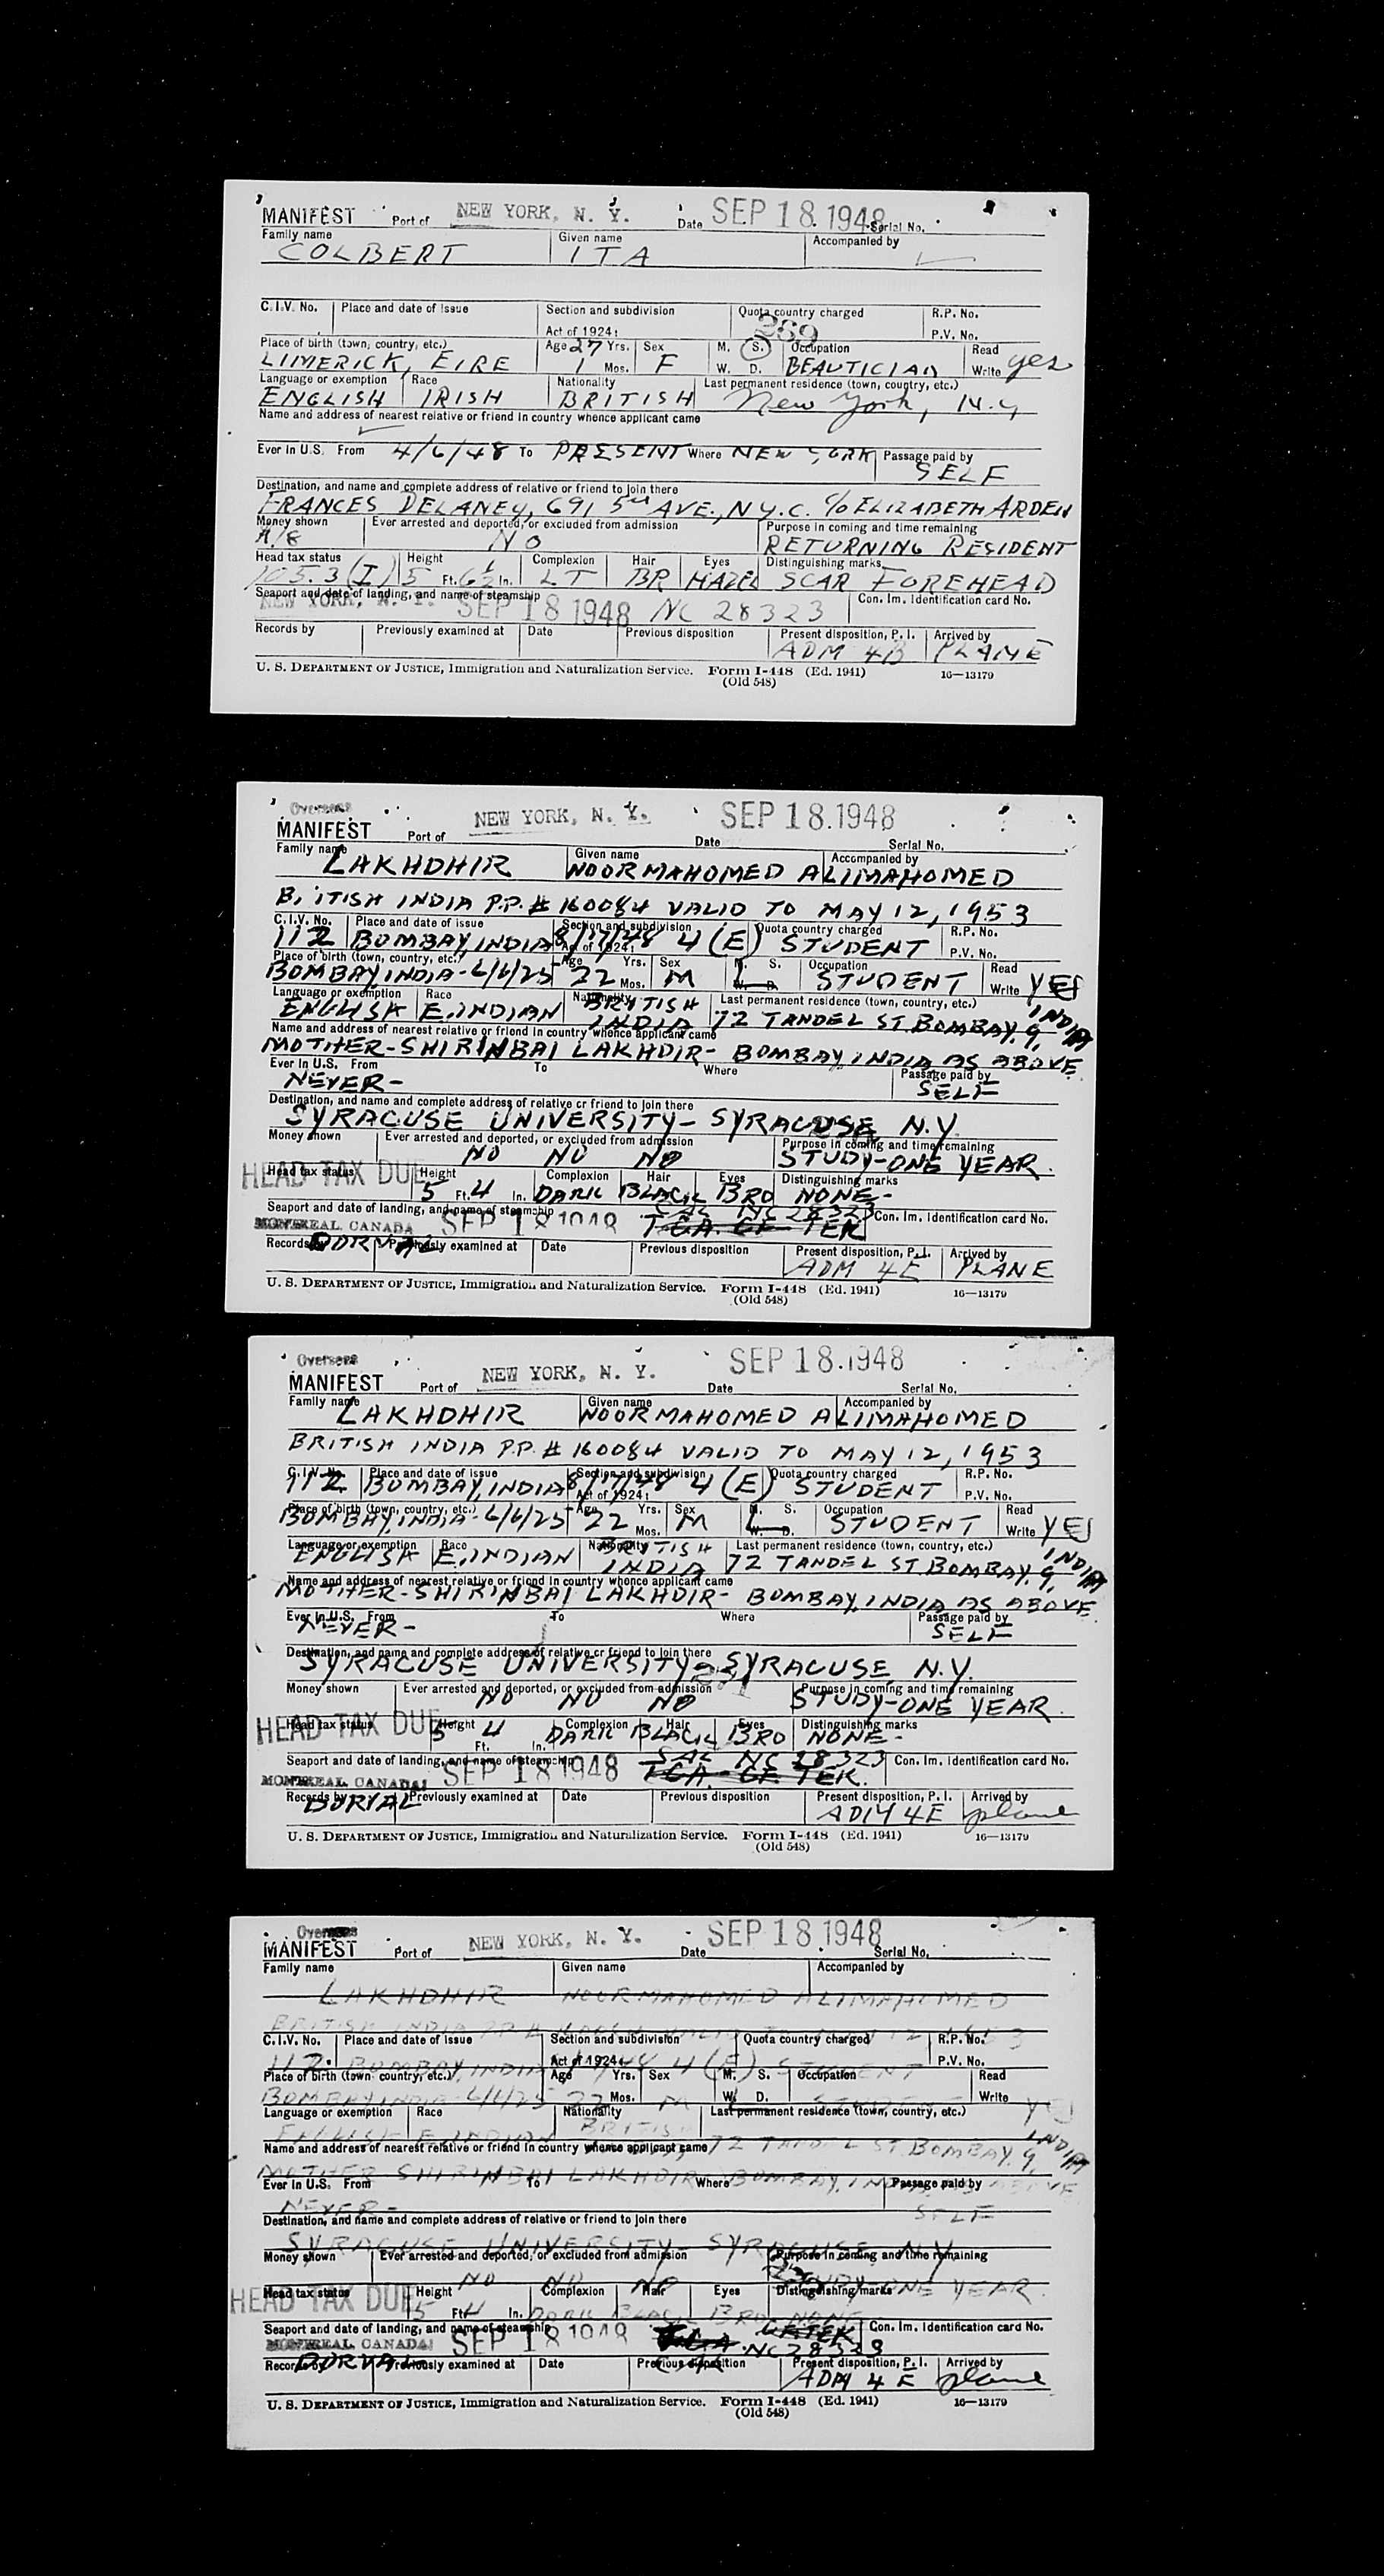 MANIFEST Port of NEW YORK, N. Y. Date SEP 18. 1948 Serial No.
Family name Given name Accompanied by
COLBERT ITA
C.I.V. No. Place and date of issue Section and subdivision Quota country charged R.P. No.
Act of 1924: 289 P.V. No.
Place of birth (town, country, etc.) Age 27 Yrs. Sex M. S. Occupation Read
LIMERICK, EIRE 1 Mos. F W. D. BEAUTICIAN Write yes
Language or exemption Race Nationality Last permanent residence (town, country, etc.)
ENGLISH IRISH BRITISH New York, N.Y
Name and address of nearest relative or friend in country whence applicant came
Ever in U.S. From 4/6/48 To PRESENT Where NEW YORK Passage paid by
SELF
Destination, and name and complete address of relative or friend to join there
FRANCES DELANEY, 691 5th AVE., N.Y.C. c/o ELIZABETH ARDEN
Money shown Ever arrested and deported, or excluded from admission Purpose in coming and time remaining
NO RETURNING RESIDENT
Head tax status Height Complexion Hair Eyes Distinguishing marks
105.3 (I) 5 Ft. 6½ In. LT BR HAZEL SCAR FOREHEAD
Seaport and date of landing, and name of steamship Con. Im. Identification card No.
NEW YORK, N. Y. SEP 18 1948 NC 28323
Records by Previously examined at Date Previous disposition Present disposition, P. I. Arrived by
ADM 4B PLANE
U. S. DEPARTMENT OF JUSTICE, Immigration and Naturalization Service. Form I-448 (Ed. 1941) 16—13179
(Old 548)
Overseas
MANIFEST Port of NEW YORK, N. Y. Date SEP 18.1948 Serial No.
Family name Given name Accompanied by
LAKHDHIR NOORMAHOMED ALIMAHOMED
B. ITISH INDIA P.P. # 160084 VALID TO MAY 12, 1953
C.I.V. No. Place and date of issue Section and subdivision Quota country charged R.P. No.
112 BOMBAY, INDIA 8/17/48 Act of 1924: 4(E) STUDENT P.V. No.
Place of birth (town, country, etc.) Age Yrs. Sex M. S. Occupation Read
BOMBAY, INDIA - 6/6/25 22 Mos. M W. D. STUDENT Write YES
Language or exemption Race Nationality Last permanent residence (town, country, etc.)
ENGLISH E. INDIAN BRITISH INDIA 72 TANDEL ST. BOMBAY. 9, INDIA
Name and address of nearest relative or friend in country whence applicant came
MOTHER-SHIRINBAI LAKHDIR- BOMBAY, INDIA AS ABOVE
Ever in U.S. From To Where Passage paid by
NEVER- SELF
Destination, and name and complete address of relative or friend to join there
SYRACUSE UNIVERSITY- SYRACUSE N.Y.
Money shown Ever arrested and deported, or excluded from admission Purpose in coming and time remaining
NO NO NO STUDY-ONE YEAR.
HEAD TAX DUE
Head tax status Height Complexion Hair Eyes Distinguishing marks
5 Ft. 4 In. DARK BLACK BRO NONE-
Seaport and date of landing, and name of steamship Con. Im. Identification card No.
MONTREAL CANADA SEP 18 1948 NC 28323
T.C.A. CF TEK
DORVAL
Records by Previously examined at Date Previous disposition Present disposition, P. I. Arrived by
ADM 4E PLANE
U. S. DEPARTMENT OF JUSTICE, Immigration and Naturalization Service. Form I-448 (Ed. 1941) 16—13179
(Old 548)
Overseas
MANIFEST Port of NEW YORK, N. Y. Date SEP 18.1948 Serial No.
Family name Given name Accompanied by
LAKHDHIR NOORMAHOMED ALIMAHOMED
BRITISH INDIA P.P. # 160084 VALID TO MAY 12, 1953
C.I.V. No. Place and date of issue Section and subdivision Quota country charged R.P. No.
112 BOMBAY, INDIA 8/17/48 Act of 1924: 4(E) STUDENT P.V. No.
Place of birth (town, country, etc.) Age Yrs. Sex M. S. Occupation Read
BOMBAY, INDIA - 6/6/25 22 Mos. M W. D. STUDENT Write YES
Language or exemption Race Nationality Last permanent residence (town, country, etc.)
ENGLISH E. INDIAN BRITISH INDIA 72 TANDEL ST. BOMBAY. 9, INDIA
Name and address of nearest relative or friend in country whence applicant came
MOTHER-SHIRINBAI LAKHDIR- BOMBAY, INDIA AS ABOVE
Ever in U.S. From To Where Passage paid by
NEVER- SELF
Destination, and name and complete address of relative or friend to join there
SYRACUSE UNIVERSITY- SYRACUSE, N.Y.
Money shown Ever arrested and deported, or excluded from admission Purpose in coming and time remaining
NO NO NO STUDY-ONE YEAR.
HEAD TAX DUE
Head tax status Height Complexion Hair Eyes Distinguishing marks
5 Ft. 4 In. DARK BLACK BRO NONE-
Seaport and date of landing, and name of steamship Con. Im. Identification card No.
MONTREAL CANADA SEP 18 1948 NC 28323
T.C.A. - CF TEK.
DORVAL
Records by Previously examined at Date Previous disposition Present disposition, P. I. Arrived by
ADM 4E plane
U. S. DEPARTMENT OF JUSTICE, Immigration and Naturalization Service. Form I-448 (Ed. 1941) 16—13179
(Old 548)
Overseas
MANIFEST Port of NEW YORK, N. Y. Date SEP 18 1948 Serial No.
Family name Given name Accompanied by
LAKHDHIR NOORMAHOMED ALIMAHOMED
BRITISH INDIA P.P. #
C.I.V. No. Place and date of issue Section and subdivision Quota country charged R.P. No.
112 BOMBAY, INDIA Act of 1924: 4(E) STUDENT P.V. No.
Place of birth (town, country, etc.) Age Yrs. Sex M. S. Occupation Read
BOMBAY INDIA 6/6/25 22 Mos. M W. D. Write YES
Language or exemption Race Nationality Last permanent residence (town, country, etc.)
ENGLISH E. INDIAN BRITISH 72 TANDEL ST. BOMBAY. 9, INDIA
Name and address of nearest relative or friend in country whence applicant came
MOTHER SHIRINBAI LAKHDIR BOMBAY, INDIA ABOVE
Ever in U.S. From To Where Passage paid by
NEVER- SELF
Destination, and name and complete address of relative or friend to join there
SYRACUSE UNIVERSITY- SYRACUSE N.Y
Money shown Ever arrested and deported, or excluded from admission Purpose in coming and time remaining
NO NO NO STUDY-ONE YEAR.
HEAD TAX DUE
Head tax status Height Complexion Hair Eyes Distinguishing marks
5 Ft. 4 In. DARK BLACK BRO NONE
Seaport and date of landing, and name of steamship Con. Im. Identification card No.
MONTREAL CANADA SEP 18 1948 T.C.A. CFTEK
NC 28323
DORVAL
Records by Previously examined at Date Previous disposition Present disposition, P. I. Arrived by
ADM 4 E plane
U. S. DEPARTMENT OF JUSTICE, Immigration and Naturalization Service. Form I-448 (Ed. 1941) 16—13179
(Old 548)